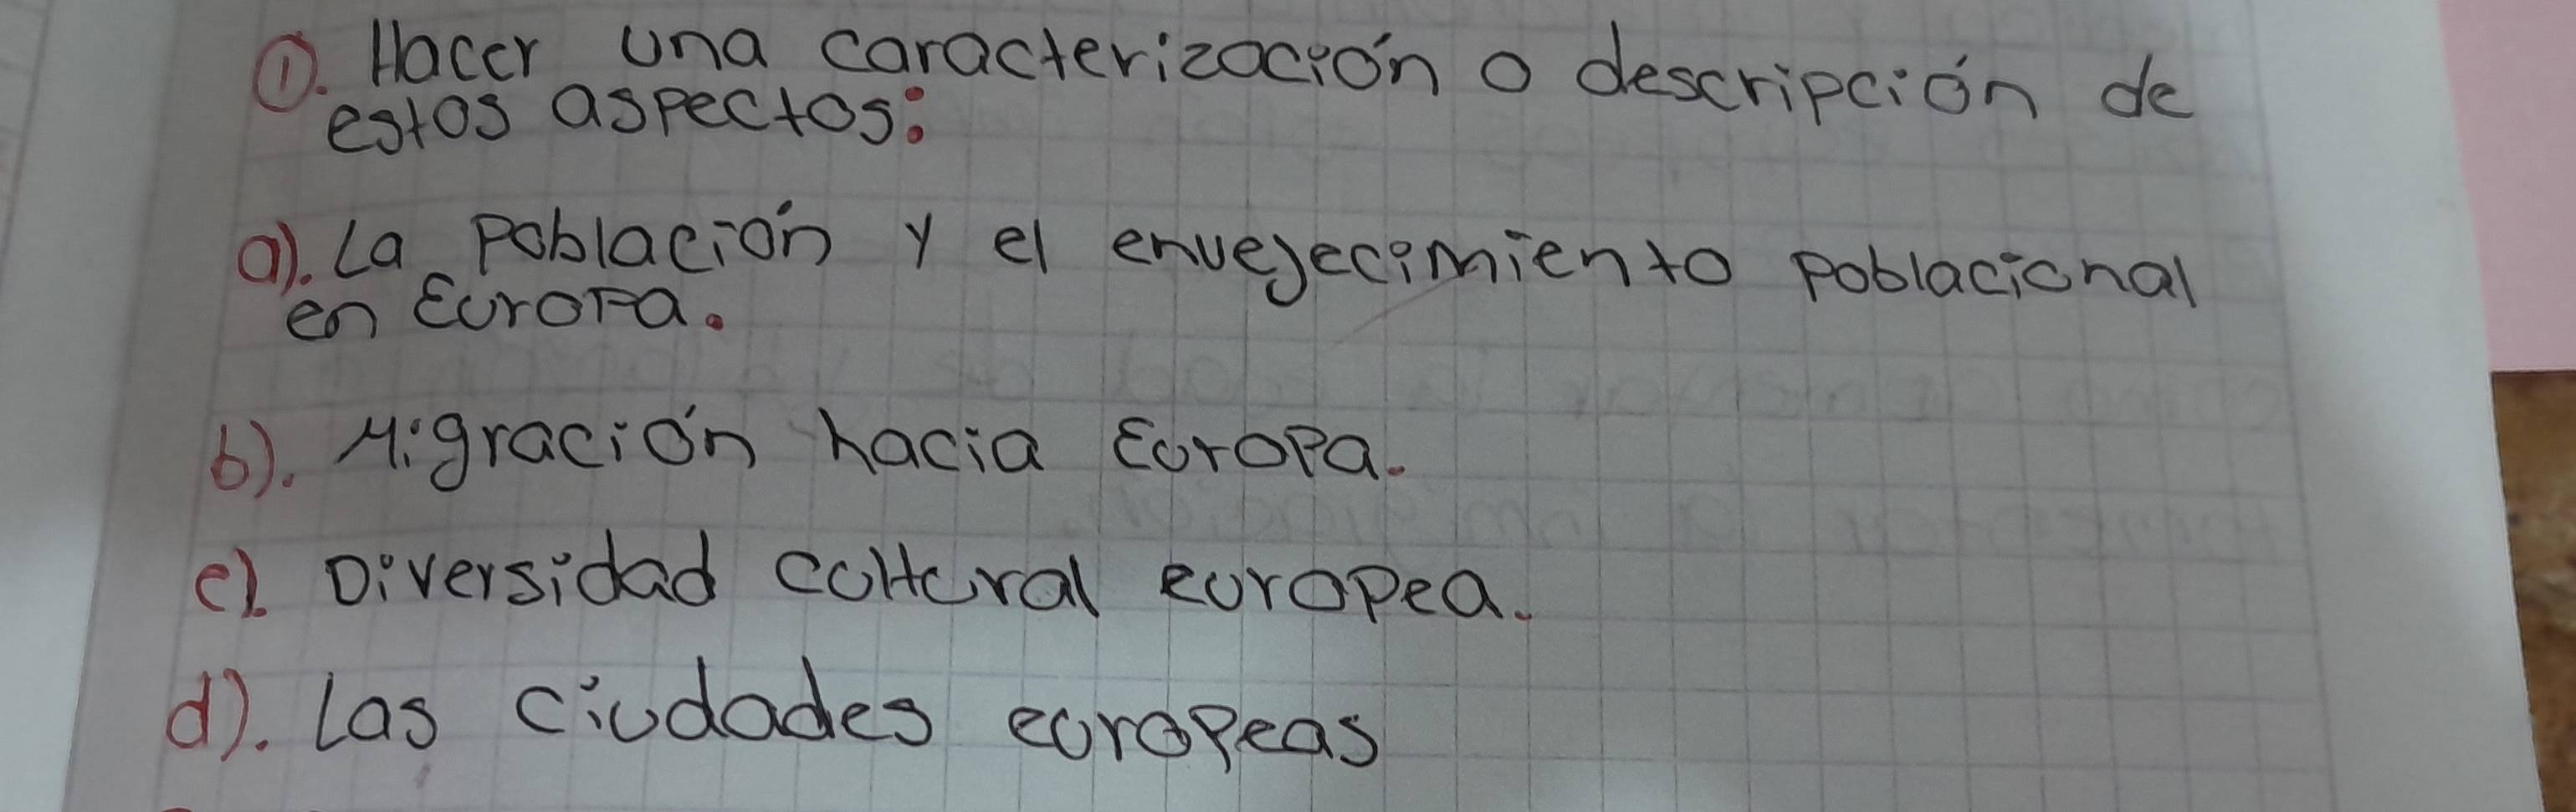 ①. Hacer una caracterización o descripción de
estos aspectos:
a). La Población y el envejecimiento poblacional
en Europa.
b). Migración hacia Europa.
c). Diversidad cultural europea.
d). Las ciudades europeas